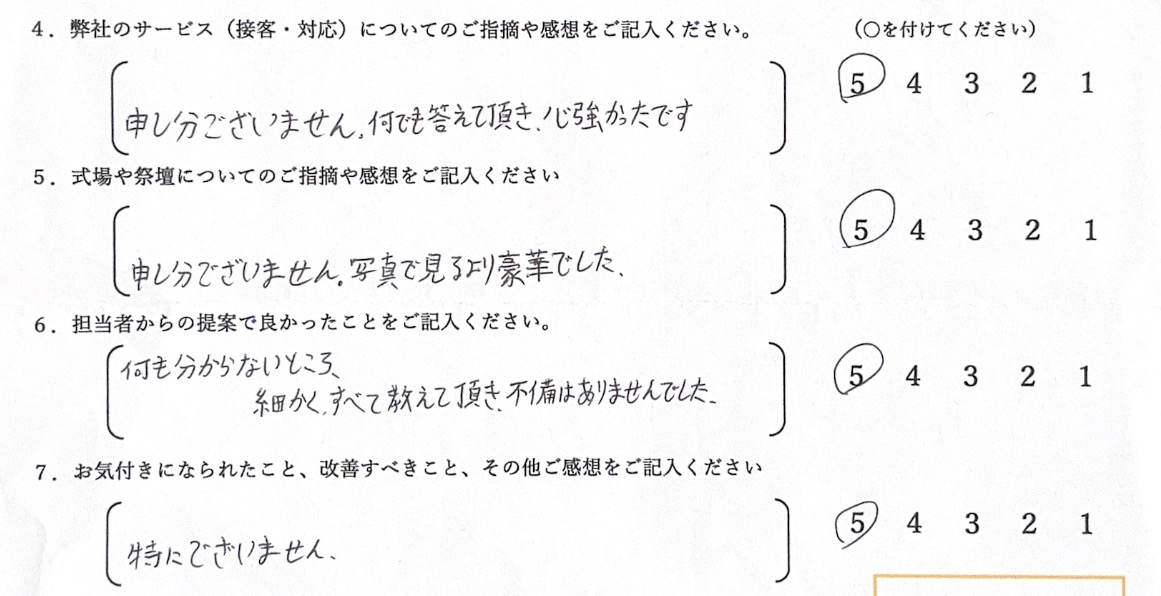 ４．弊社のサービス（接客・対応）についてのご指摘や感想をご記入ください。 （○を付けてください）
申し分ございません。何でも答えて頂き、心強かったです
5 4 3 2 1
５．式場や祭壇についてのご指摘や感想をご記入ください
申し分ございません。写真で見るより豪華でした、
5 4 3 2 1
６．担当者からの提案で良かったことをご記入ください。
何も分からないところ、
細かく、すべて教えて頂き、不備はありませんでした、
5 4 3 2 1
７．お気付きになられたこと、改善すべきこと、その他ご感想をご記入ください
特にございません、
5 4 3 2 1